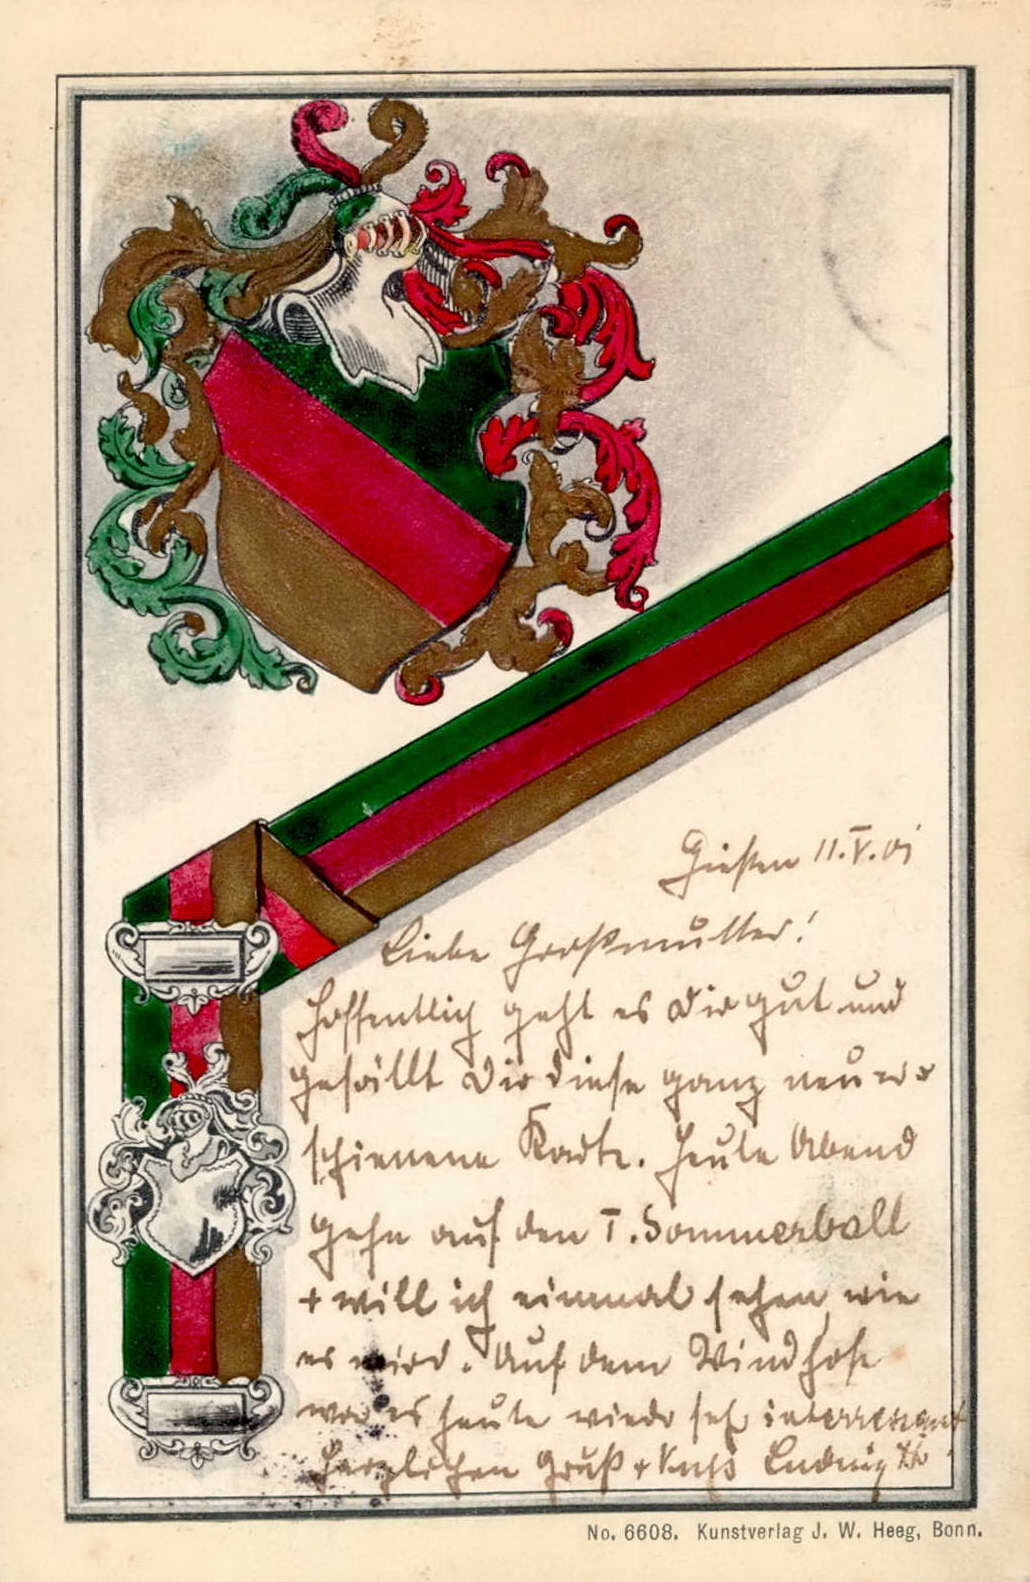 Gießen 11.V.01
Liebe Großmutter!
Hoffentlich geht es Dir gut und
gefällt Dir diese ganz neu er-
schienene Karte. Heute Abend
gehn auf den I. Sommerball
+ will ich einmal sehen, wie
es wird. Auf dem Windhofe
war es heute wieder sehr interressant
Herzlichen Gruß + Kuß Ludwig
No. 6608. Kunstverlag J. W. Heeg, Bonn.